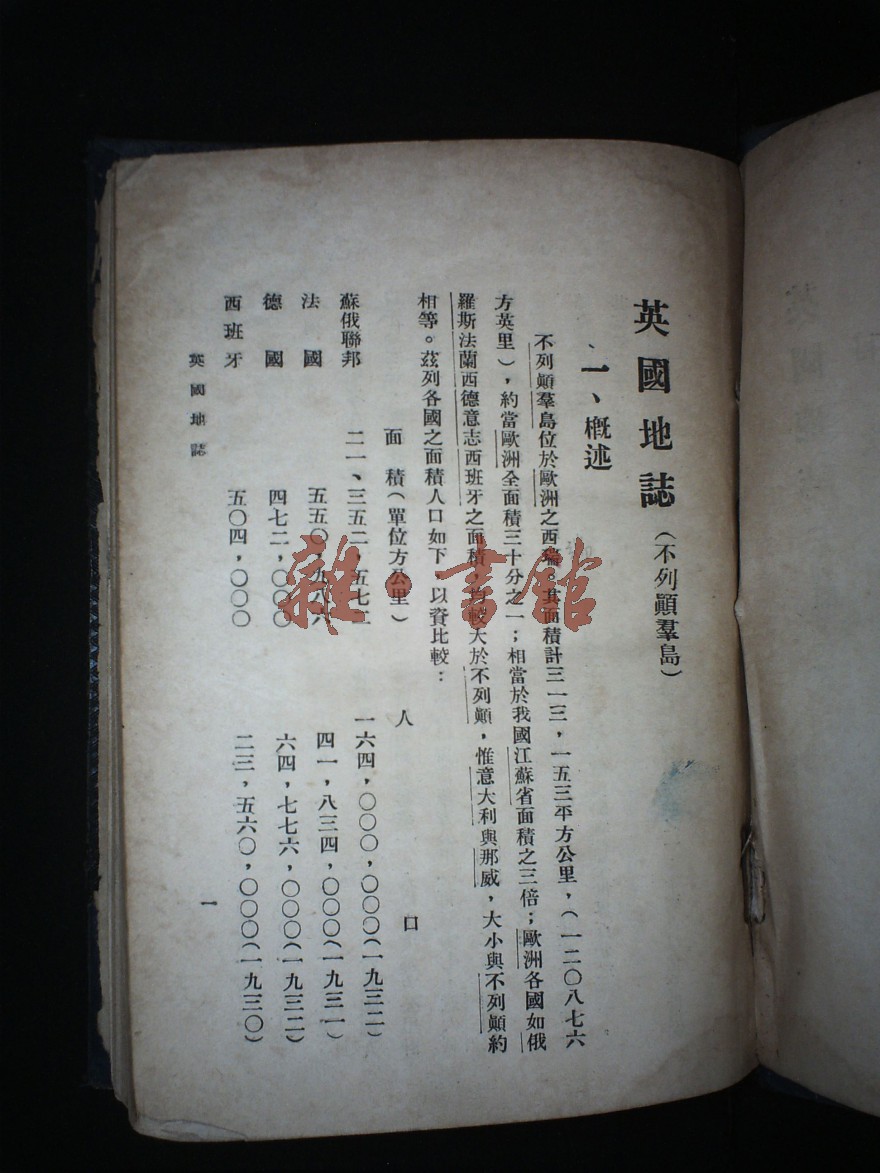 英國地誌(不列顛羣島)
一、概述
不列顛羣島位於歐洲之西端。其面積計三一三，一五三平方公里，(一二〇八七六
方英里)，約當歐洲全面積三十分之一；相當於我國江蘇省面積之三倍；歐洲各國如俄
羅斯法蘭西德意志西班牙之面積，均較大於不列顛，惟意大利與那威，大小與不列顛約
相等。茲列各國之面積人口如下，以資比較：
面積(單位方公里) 人口
蘇俄聯邦 二一、三五二，五七二 一六四，〇〇〇，〇〇〇(一九三二)
法國 五五〇，九八六 四一，八三四，〇〇〇(一九三一)
德國 四七二，〇〇〇 六四，七七六，〇〇〇(一九三二)
西班牙 五〇四，〇〇〇 二三，五六〇，〇〇〇(一九三〇)
英國地誌 一
雜·書館